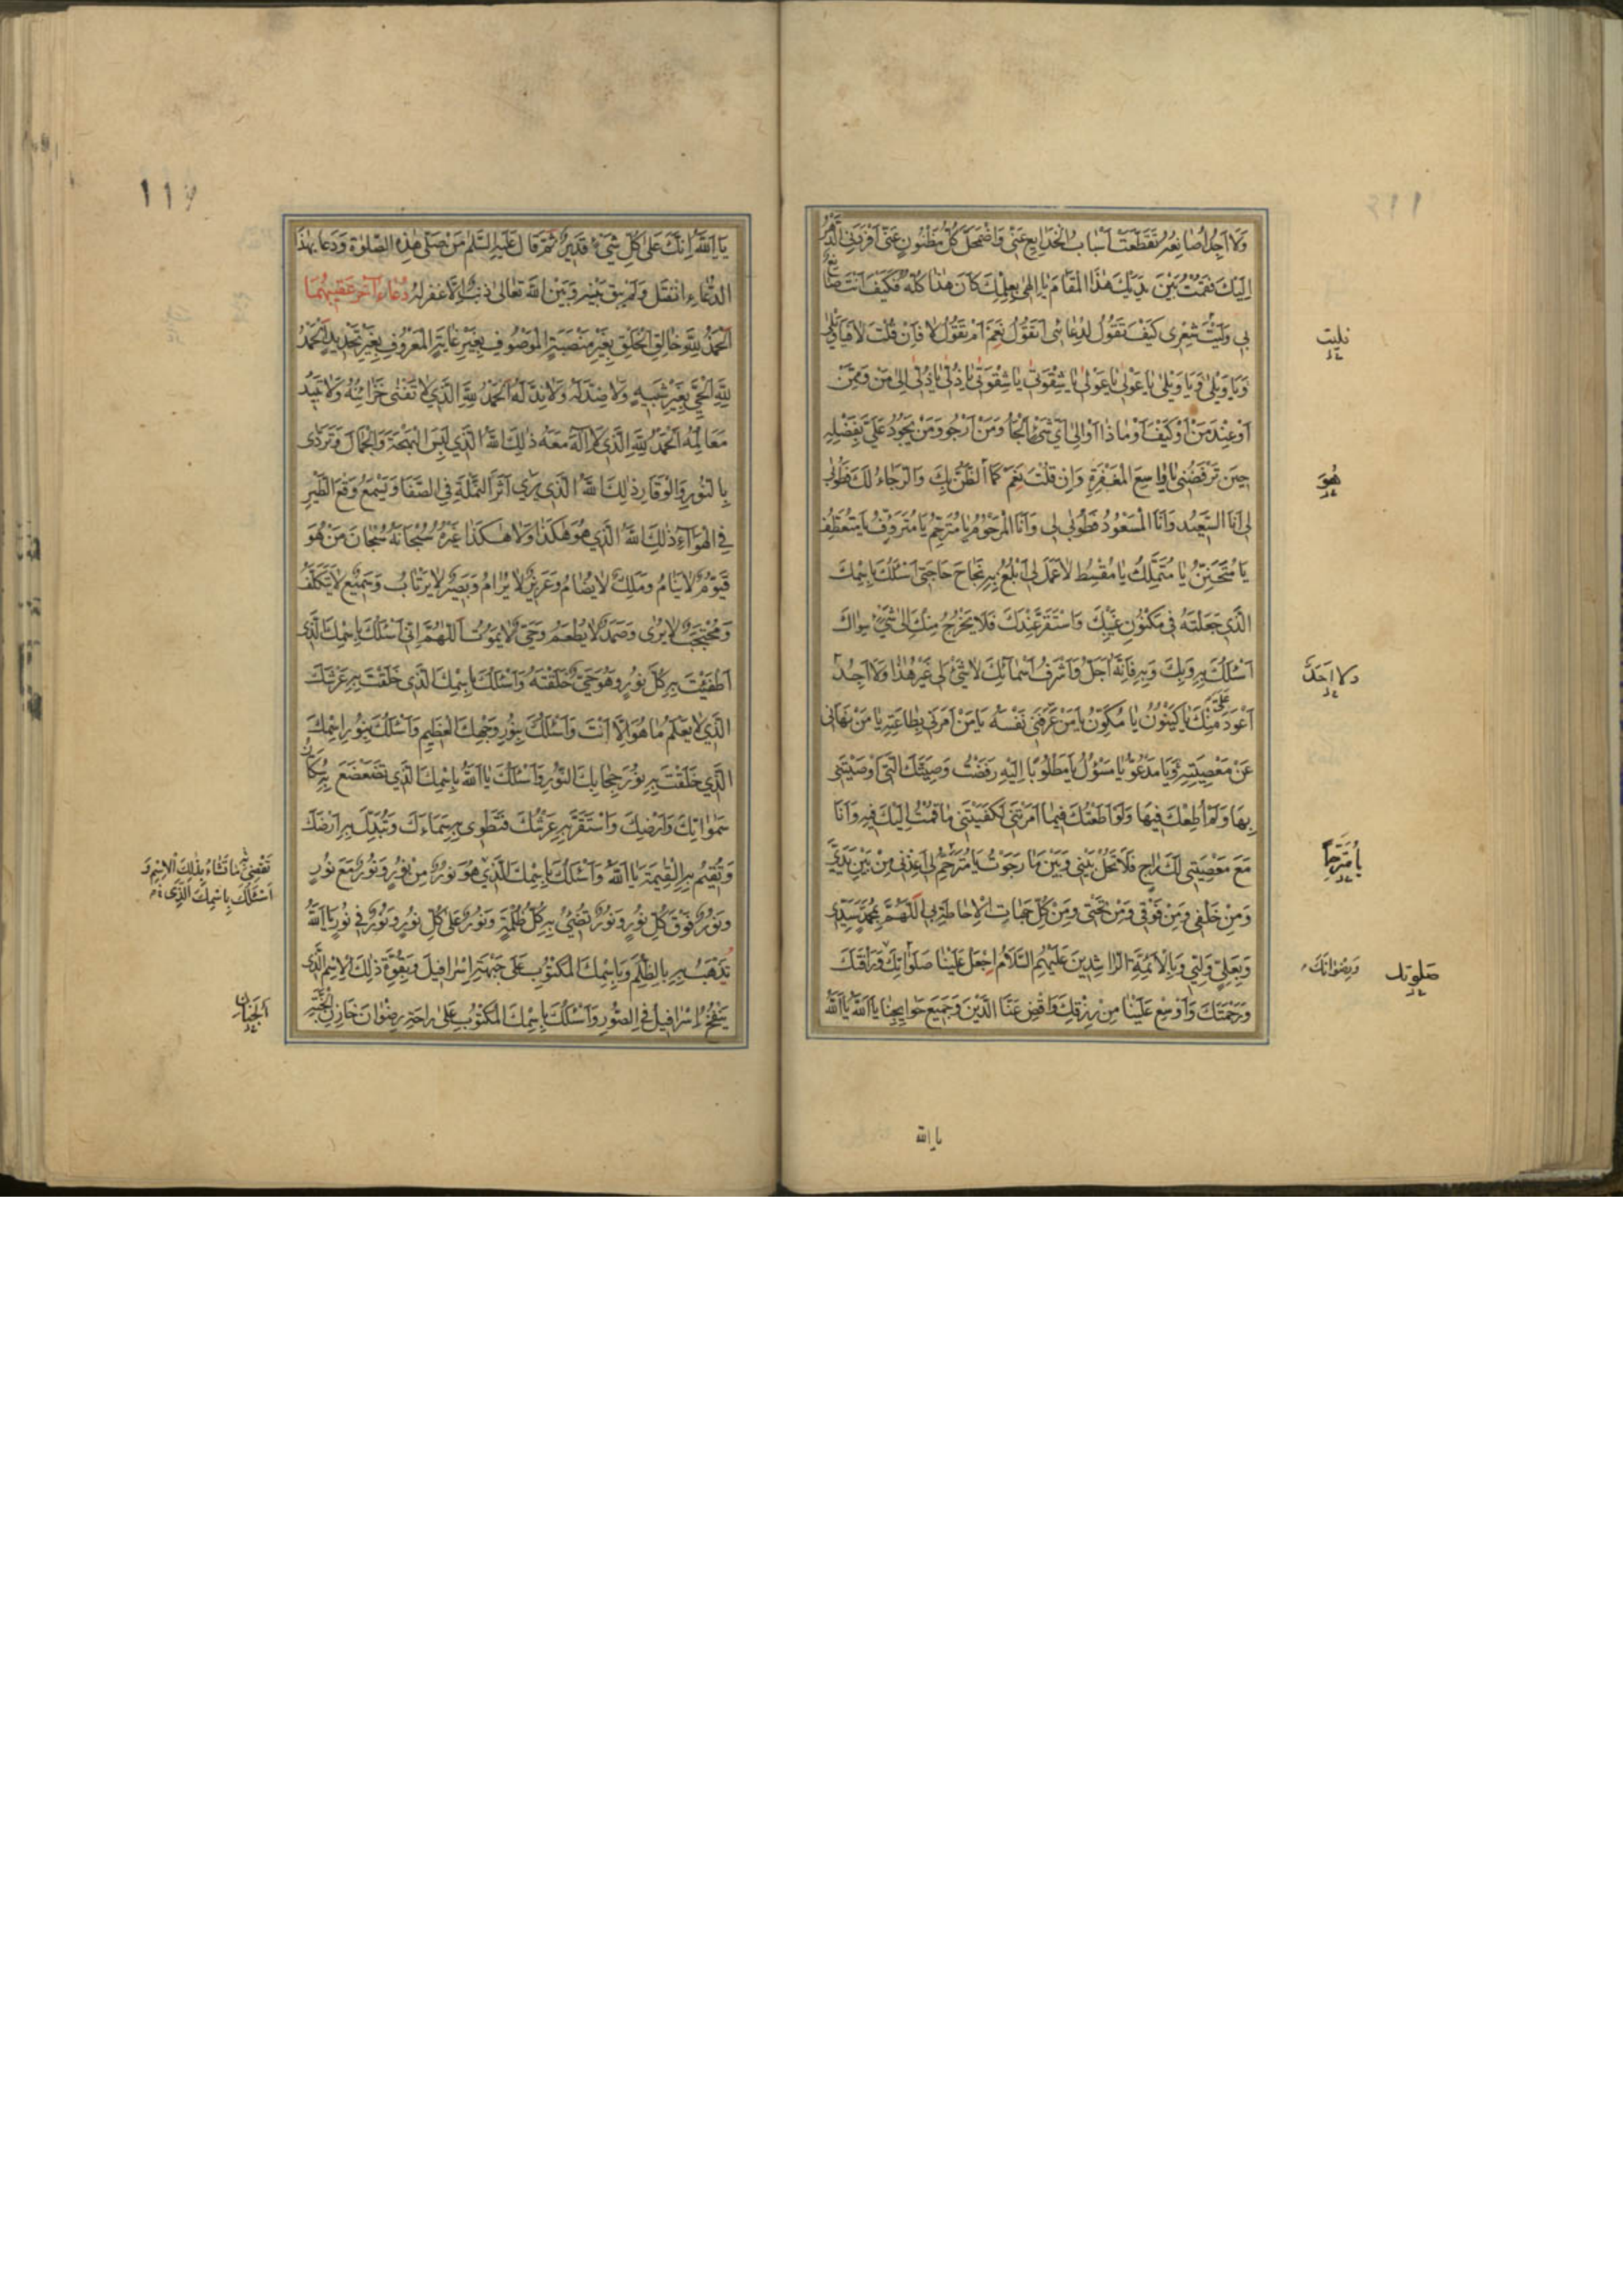 وَلَا اَجِدُ اُصَانِعُهُ تَقَطَّعَتْ اَسْبَابُ الْخَدَايِعِ عَنّى وَاضْمَحَلَّ كُلُّ مَظْنُونٍ عَنّى اَفْرَدَنِى الدَّهْرُ
اِلَيْكَ فَقُمْتُ بَيْنَ يَدَيْكَ هٰذَا الْمَقَامَ يَا اِلٰهِى بِعِلْمِكَ كَانَ هٰذَا كُلُّهُ فَكَيْفَ اَنْتَ صَانِعٌ
بِى وَلَيْتَ شِعْرِى كَيْفَ تَقُولُ لِدُعَائِى اَتَقُولُ نَعَمْ اَمْ تَقُولُ لَا فَاِنْ قُلْتَ لَا فَيَا وَيْلِى
وَيَا وَيْلِى وَيَا وَيْلِى يَا عَوْلِى يَا عَوْلِى يَا شِقْوَتِى يَا شِقْوَتِى يَا ذُلِّى يَا ذُلِّى اِلٰى مَنْ وَمِمَّنْ
اَوْ عِنْدَ مَنْ اَوْ كَيْفَ اَوْ مَاذَا اَوْ اِلٰى اَىِّ شَىْءٍ اَلْجَأُ وَمَنْ اَرْجُو وَمَنْ يَجُودُ عَلَىَّ بِفَضْلِهِ
حِينَ تَرْفَضُنِى يَا وَاسِعَ الْمَغْفِرَةِ وَاِنْ قُلْتَ نَعَمْ كَمَا الظَّنُّ بِكَ وَالرَّجَاءُ لَكَ فَطُوبٰى
لِى اَنَا السَّعِيدُ وَاَنَا الْمَسْعُودُ فَطُوبٰى لِى وَاَنَا الْمَرْحُومُ يَا مُتَرَحِّمُ يَا مُتَرَوِّفُ يَا مُتَعَطِّفُ
يَا مُتَحَنِّنُ يَا مُتَمَلِّكُ يَا مُقْسِطُ لَا عَمَلَ لِى اَبْلُغُ بِهِ نَجَاحَ حَاجَتِى اَسْئَلُكَ بِاسْمِكَ
الَّذِى جَعَلْتَهُ فِى مَكْنُونِ غَيْبِكَ وَاسْتَقَرَّ عِنْدَكَ فَلَا يَخْرُجُ مِنْكَ اِلٰى شَىْءٍ سِوَاكَ
اَسْئَلُكَ بِهِ وَبِكَ وَبِهِ فَاِنَّهُ اَجَلُّ وَاَشْرَفُ اَسْمَائِكَ لَا شَىْءَ لِى غَيْرُ هٰذَا وَلَا اَجِدُ
اَعْوَدَ عَلَىَّ مِنْكَ يَا كَيْنُونُ يَا مُكَوِّنُ يَا مَنْ عَرَّفَنِى نَفْسَهُ يَا مَنْ اَمَرَنِى بِطَاعَتِهِ يَا مَنْ نَهَانِى
عَنْ مَعْصِيَتِهِ وَيَا مَدْعُوُّ يَا مَسْؤُلُ يَا مَطْلُوبًا اِلَيْهِ رَفَضْتُ وَصِيَّتَكَ الَّتِى اَوْصَيْتَنِى
بِهَا وَلَمْ اُطِعْكَ فِيهَا وَلَوْ اَطَعْتُكَ فِيمَا اَمَرْتَنِى لَكَفَيْتَنِى مَا قُمْتُ اِلَيْكَ فِيهِ وَاَنَا
مَعَ مَعْصِيَتِى لَكَ رَاجٍ فَلَا تَحُلْ بَيْنِى وَبَيْنَ مَا رَجَوْتُ يَا مُتَرَحِّمُ لِى اَعِذْنِى مِنْ بَيْنِ يَدَىَّ
وَمِنْ خَلْفِى وَمِنْ فَوْقِى وَمِنْ تَحْتِى وَمِنْ كُلِّ جَهَاتِ الْاِحَاطَةِ بِى اَللّٰهُمَّ بِمُحَمَّدٍ سَيِّدِى
وَبِعَلِىٍّ وَلِيّى وَبِالْاَئِمَّةِ الرَّاشِدِينَ عَلَيْهِمُ السَّلَامُ اِجْعَلْ عَلَيْنَا صَلَوَاتِكَ وَرَأْفَتَكَ
وَرَحْمَتَكَ وَاَوْسِعْ عَلَيْنَا مِنْ رِزْقِكَ وَاقْضِ عَنَّا الدَّيْنَ وَجَمِيعَ حَوَايِجِنَا يَا اَللّٰهُ يَا اَللّٰهُ
هُوَ
وَلَا اَحَدَ
يَا مُتَرَحِّمًا
صلوتك
وَرِضْوَانَكَ
يا الله
١١٦
يَا اَللّٰهُ اِنَّكَ عَلٰى كُلِّ شَىْءٍ قَدِيرٌ ثُمَّ قَالَ عَلَيْهِ السَّلٰمُ مَنْ صَلّٰى هٰذِهِ الصَّلٰوةَ وَدَعَا بِهٰذَا
الدُّعَاءِ انْفَتَلَ وَلَمْ يَبْقَ بَيْنَهُ وَبَيْنَ اللّٰهِ تَعَالٰى ذَنْبٌ اِلَّا غَفَرَ لَهُ دُعَاءٌ آخَرُ عَقِيبَهُمَا
اَلْحَمْدُ لِلّٰهِ خَالِقِ الْخَلْقِ بِغَيْرِ مَنْصَبَةٍ الْمَوْصُوفِ بِغَيْرِ غَايَةٍ الْمَعْرُوفِ بِغَيْرِ تَحْدِيدٍ اَلْحَمْدُ
لِلّٰهِ الْحَىِّ بِغَيْرِ شَبِيهٍ وَلَا ضِدَّ لَهُ وَلَا نِدَّ لَهُ اَلْحَمْدُ لِلّٰهِ الَّذِى لَا تَفْنٰى خَزَائِنُهُ وَلَا تَبِيدُ
مَعَالِمُهُ اَلْحَمْدُ لِلّٰهِ الَّذِى لَا اِلٰهَ مَعَهُ ذٰلِكَ اللّٰهُ الَّذِى لَبِسَ الْبَهْجَةَ وَالْجَمَالَ وَتَرَدّٰى
بِالنُّورِ وَالْوَقَارِ ذٰلِكَ اللّٰهُ الَّذِى يَرٰى اَثَرَ النَّمْلَةِ فِى الصَّفَا وَيَسْمَعُ وَقْعَ الطَّيْرِ
فِى الْهَوَآءِ ذٰلِكَ اللّٰهُ الَّذِى هُوَ هٰكَذَا وَلَا هٰكَذَا غَيْرُهُ سُبْحَانَهُ سُبْحَانَ مَنْ هُوَ
قَيُّومٌ لَا يَنَامُ وَمَلِكٌ لَا يُضَامُ وَعَزِيزٌ لَا يُرَامُ وَبَصِيرٌ لَا يَرْتَابُ وَسَمِيعٌ لَا يَتَكَلَّفُ
وَمُحْتَجِبٌ لَا يُرٰى وَصَمَدٌ لَا يُطْعَمُ وَحَىٌّ لَا يَمُوتُ اَللّٰهُمَّ اِنّى اَسْئَلُكَ بِاسْمِكَ الَّذِى
اَطْفَيْتَ بِهِ كُلَّ نُورٍ وَهُوَ حَىٌّ خَلَقْتَهُ وَاَسْئَلُكَ بِاسْمِكَ الَّذِى خَلَقْتَ بِهِ عَرْشَكَ
الَّذِى لَا يَعْلَمُ مَا هُوَ اِلَّا اَنْتَ وَاَسْئَلُكَ بِنُورِ وَجْهِكَ الْعَظِيمِ وَاَسْئَلُكَ بِنُورِ اسْمِكَ
الَّذِى خَلَقْتَ بِهِ نُورَ حِجَابِكَ النُّورَ وَاَسْئَلُكَ يَا اَللّٰهُ بِاسْمِكَ الَّذِى تَضَعْضَعَ بِهِ سُكَّانُ
سَمٰوَاتِكَ وَاَرْضِكَ وَاسْتَقَرَّ بِهِ عَرْشُكَ وَتَطْوِى بِهِ سَمَاءَكَ وَتُبَدِّلُ بِهِ اَرْضَكَ
وَتُقِيمُ بِهِ الْقِيٰمَةَ يَا اَللّٰهُ وَاَسْئَلُكَ بِاسْمِكَ الَّذِى هُوَ نُورٌ مِنْ نُورٍ وَنُورٌ مَعَ نُورٍ
وَنُورٌ فَوْقَ كُلِّ نُورٍ وَنُورٌ تُضِىءُ بِهِ كُلَّ ظُلْمَةٍ وَنُورٌ عَلٰى كُلِّ نُورٍ وَنُورٌ فِى نُورٍ يَا اَللّٰهُ
تَذْهَبُ بِهِ الظُّلَمُ وَبِاسْمِكَ الْمَكْتُوبِ عَلٰى جَبْهَةِ اِسْرَافِيلَ وَبِقُوَّةِ ذٰلِكَ الْاِسْمِ الَّذِى
يَنْفُخُ اِسْرَافِيلُ فِى الصُّورِ وَاَسْئَلُكَ بِاسْمِكَ الْمَكْتُوبِ عَلٰى رَاحَةِ رِضْوَانَ خَازِنِ الْجَنَّةِ
تَقْضِى مَا تَشَاءُ بِذٰلِكَ الْاِسْمِ وَ
اَسْئَلُكَ بِاسْمِكَ الَّذِى
الْجِنَانِ